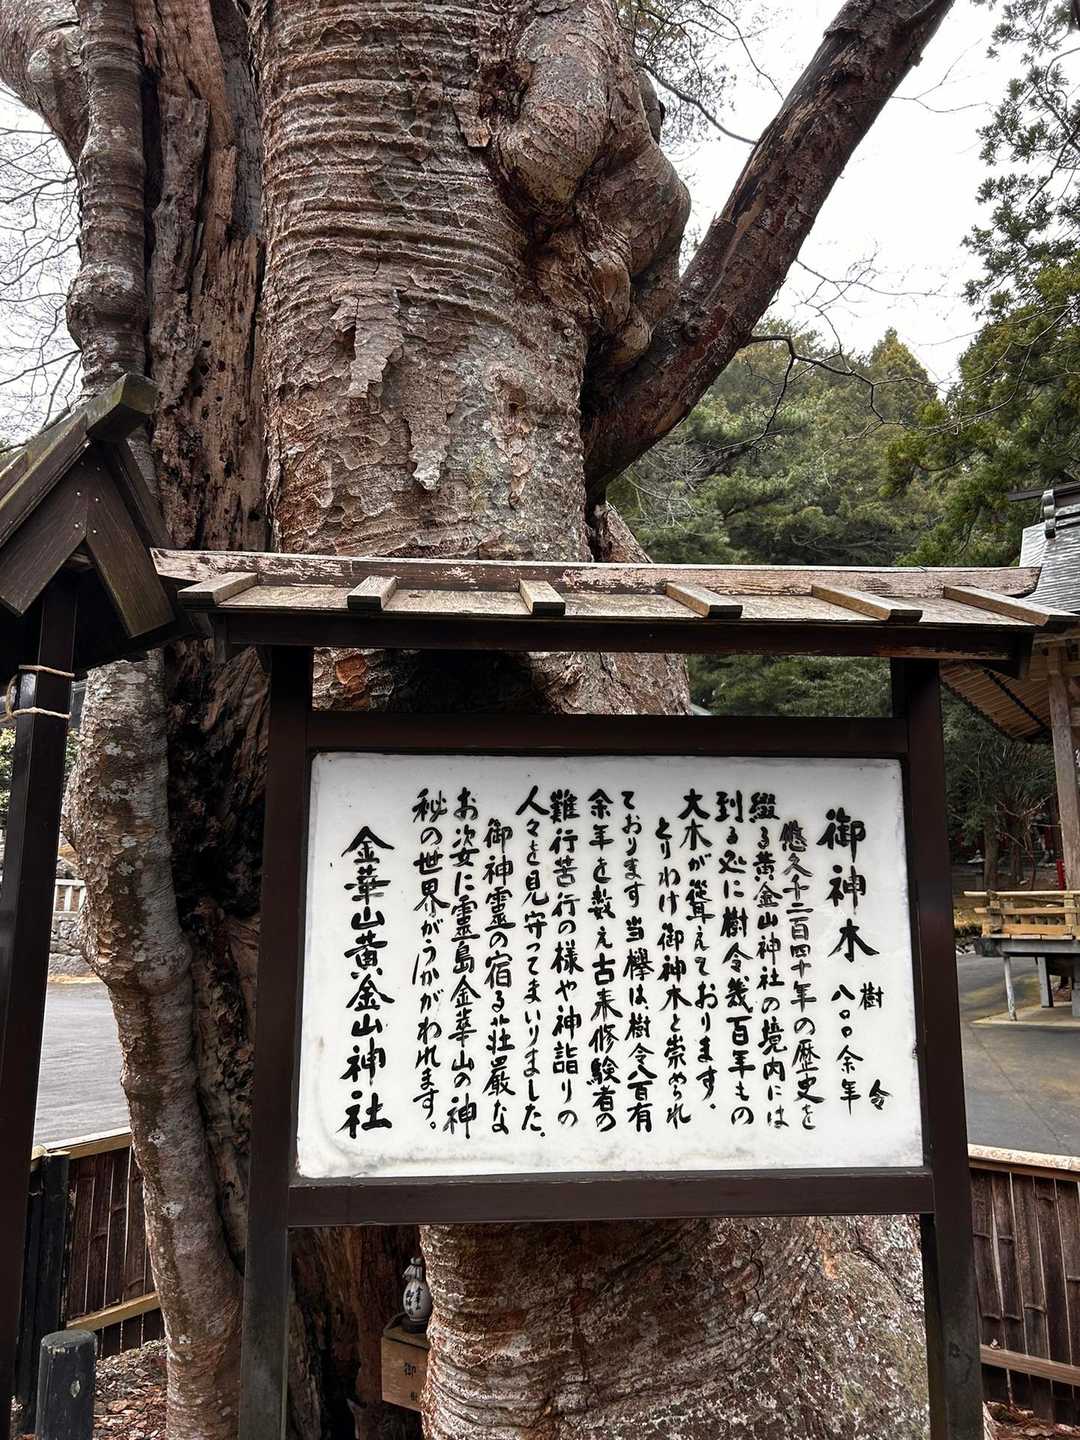 御神木
樹令
八〇〇余年
悠久千二百四十年の歴史を
綴る黄金山神社の境内には
到る処に樹令幾百年もの
大木が聳えております。
とりわけ御神木と崇められ
ております当欅は、樹令八百有
余年を数え古来修験者の
難行苦行の様や神詣りの
人々を見守ってまいりました。
御神霊の宿る荘厳な
お姿に霊島金華山の神
秘の世界がうかがわれます。
金華山黄金山神社
御